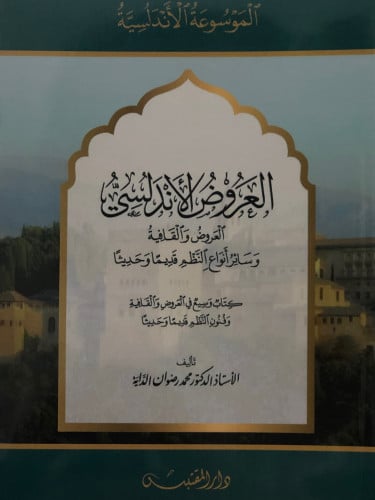 الْمَوْسُوعَةُ الْأَنْدَلُسِيَّةُ
العَرُوْضُ الأَنْدَلُسِيُّ
العَرُوضُ وَالْقَافِيَةُ
وَسَائِرُ أَنْوَاعِ النَّظْمِ قَدِيمًا وَحَدِيثًا
كِتَابٌ وَسِيعٌ فِي العَرُوضِ وَالْقَافِيَةِ
وَفُنُونِ النَّظْمِ قَدِيمًا وَحَدِيثًا
تأليف
الأستاذ الدكتور محمد رضوان الداية
دار المقتبس